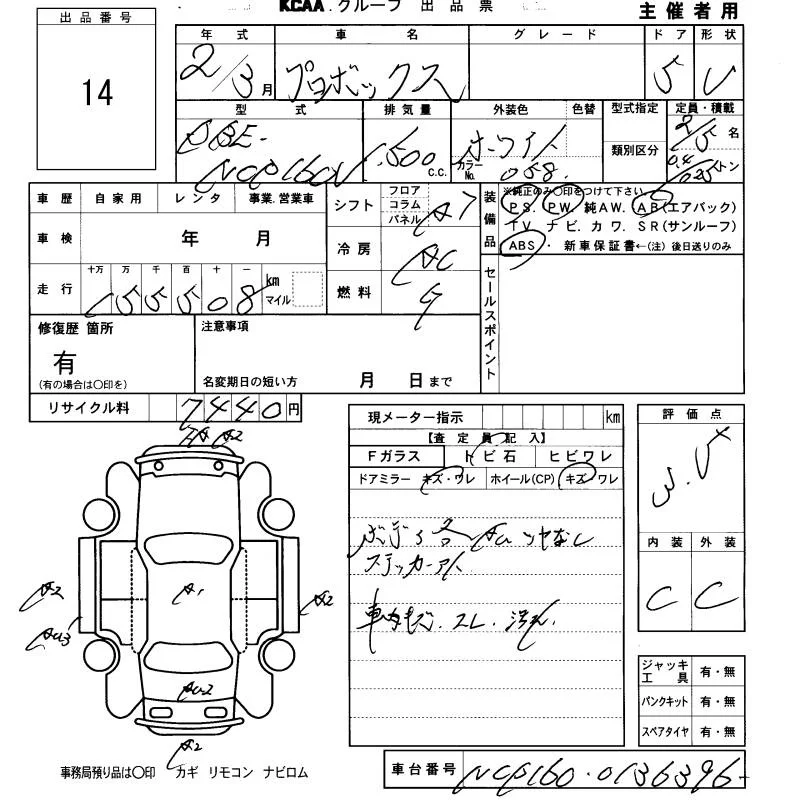 KCAA.グループ 出品票
主催者用
出品番号
14
年式 車名 グレード ドア 形状
2/3月 プロボックス 5 V
型式 排気量 外装色 色替 型式指定 定員・積載
DBE- 1,500 ホワイト 2/5名
NCP160V c.c. カラーNo. 058. 類別区分 0.4/0.25トン
車歴 自家用 レンタ 事業.営業車
車検 年 月
走行 十万 万 千 百 十 一
155508 km マイル
シフト フロア コラム パネル AT
冷房 AC
燃料 G
装備品
※純正のみ〇印をつけて下さい。
PS. PW. 純AW. AB(エアバック)
TV ナビ. カワ. SR(サンルーフ)
ABS・ 新車保証書←(注) 後日送りのみ
セールスポイント
修復歴 箇所
有
(有の場合は〇印を)
注意事項
名変期日の短い方 月 日まで
リサイクル料 7440円
現メーター指示 km
【査定員記入】
Fガラス トビ石 ヒビワレ
ドアミラー キズ・ワレ ホイール(CP) キズ ワレ
ボディ各AUツヤなし
ステッカーアト
車内キズ.スレ.汚れ.
評価点
3.5
内装 外装
C C
ジャッキ工具 有・無
パンクキット 有・無
スペアタイヤ 有・無
A2
A2
AU3
A1
A2
AU2
A2
事務局預り品は〇印 カギ リモコン ナビロム
車台番号 NCP160-0136396-